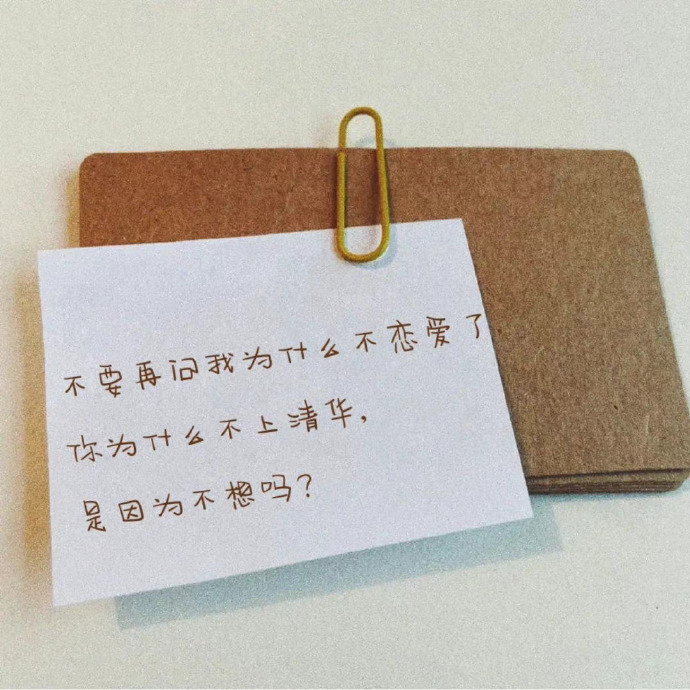 不要再问我为什么不恋爱了
你为什么不上清华，
是因为不想吗？